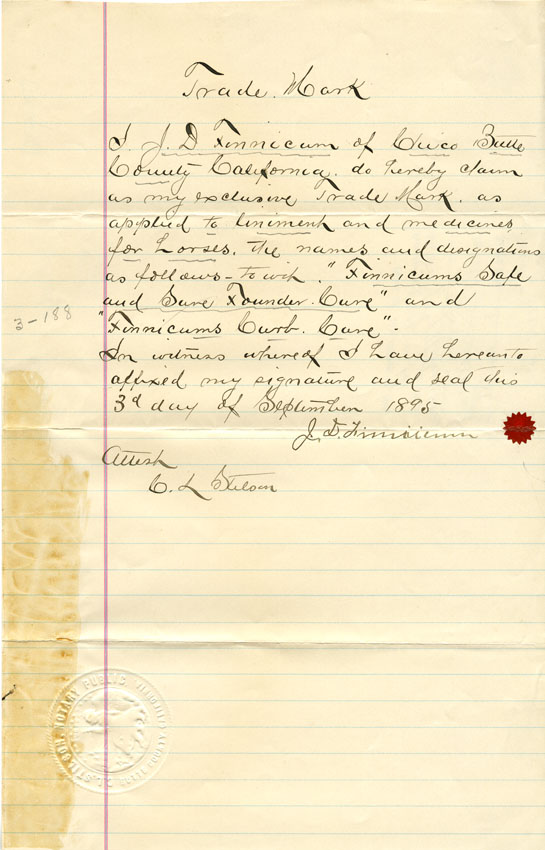 Trade. Mark
I. J. D Finnicum of Chico Butte
County California. do hereby claim
as my exclusive Trade Mark. as
applied to liniment and medicines
for horses. the names and designations
as follows - to wit. "Finnicums Safe
and Sure Founder. Cure" and
"Finnicums Curb. Cure".
3-188
In witness whereof I have hereunto
affixed my signature and seal this
3d day of September 1895
J. D. Finnicum
Attest
C. L Stilson
NOTARY PUBLIC